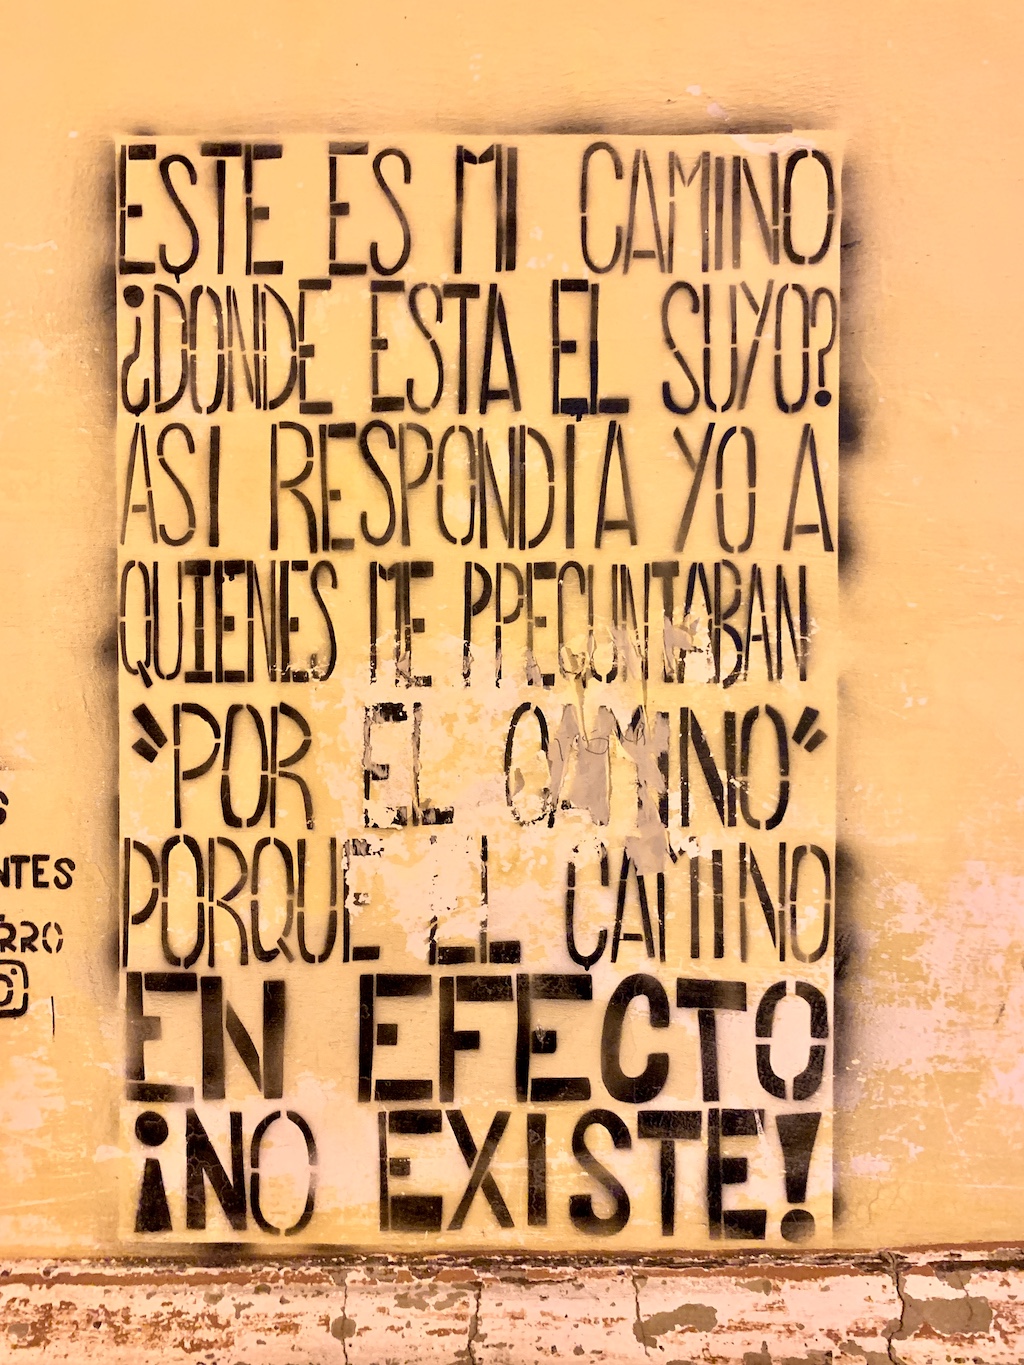 ESTE ES MI CAMINO
¿DONDE ESTA EL SUYO?
ASI RESPONDIA YO A
QUIENES ME PREGUNTABAN
"POR EL CAMINO"
PORQUE EL CAMINO
EN EFECTO
¡NO EXISTE!
NTES
RRO